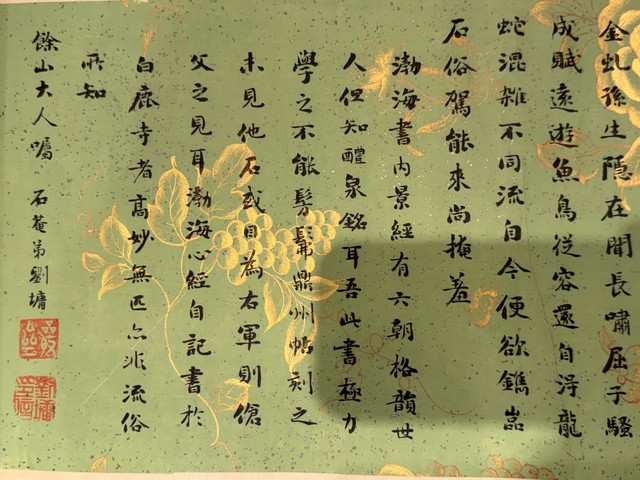 金虬孫生隱在聞長嘯屈子騷
成賦遠遊魚鳥從容還自淂龍
蛇混雜不同流自今便欲鐫嵓
石俗駕能來尚掩羞
渤海書内景經有六朝格韻世
人但知醴泉銘耳吾此書極力
學之不能髣髴鼎州帖刻之
未見他石或目為右軍則傖
父之見耳渤海心經自記書於
白鹿寺者高妙無匹亦非流俗
所知
餘山大人囑 石菴弟劉墉